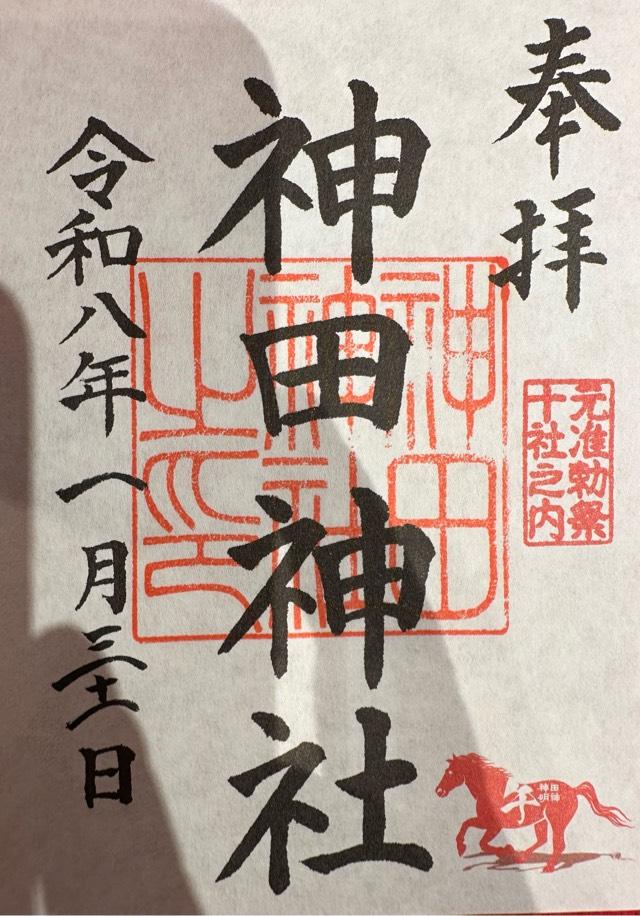 奉拝
元准勅祭
十社之内
神田神社
神田
神社
之印
令和八年一月三十一日
午
神田
明神